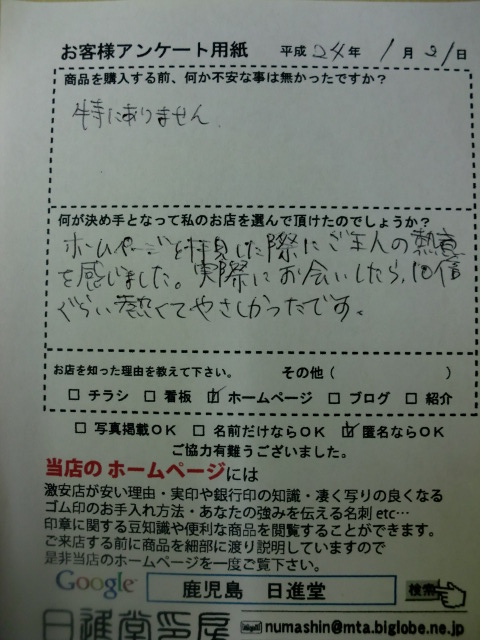 お客様アンケート用紙 平成24年 1月21日
商品を購入する前、何か不安な事は無かったですか？
特にありません
何が決め手となって私のお店を選んで頂けたのでしょうか？
ホームページを拝見した際にご主人の熱意
を感じました。実際にお会いしたら、10倍
ぐらい熱くてやさしかったです。
お店を知った理由を教えて下さい。 その他（ ）
□ チラシ □ 看板 ☑ ホームページ □ ブログ □ 紹介
□ 写真掲載ＯＫ □ 名前だけならＯＫ ☑ 匿名ならＯＫ
ご協力有難うございました。
当店の ホームページには
激安店が安い理由・実印や銀行印の知識・凄く写りの良くなる
ゴム印のお手入れ方法・あなたの強みを伝える名刺 etc…
印章に関する豆知識や便利な商品を閲覧することができます。
ご来店する前に商品を細部に渡り説明していますので
是非当店のホームページを一度ご覧下さい。
Google 鹿児島 日進堂 検索
日進堂印房 numashin@mta.biglobe.ne.jp